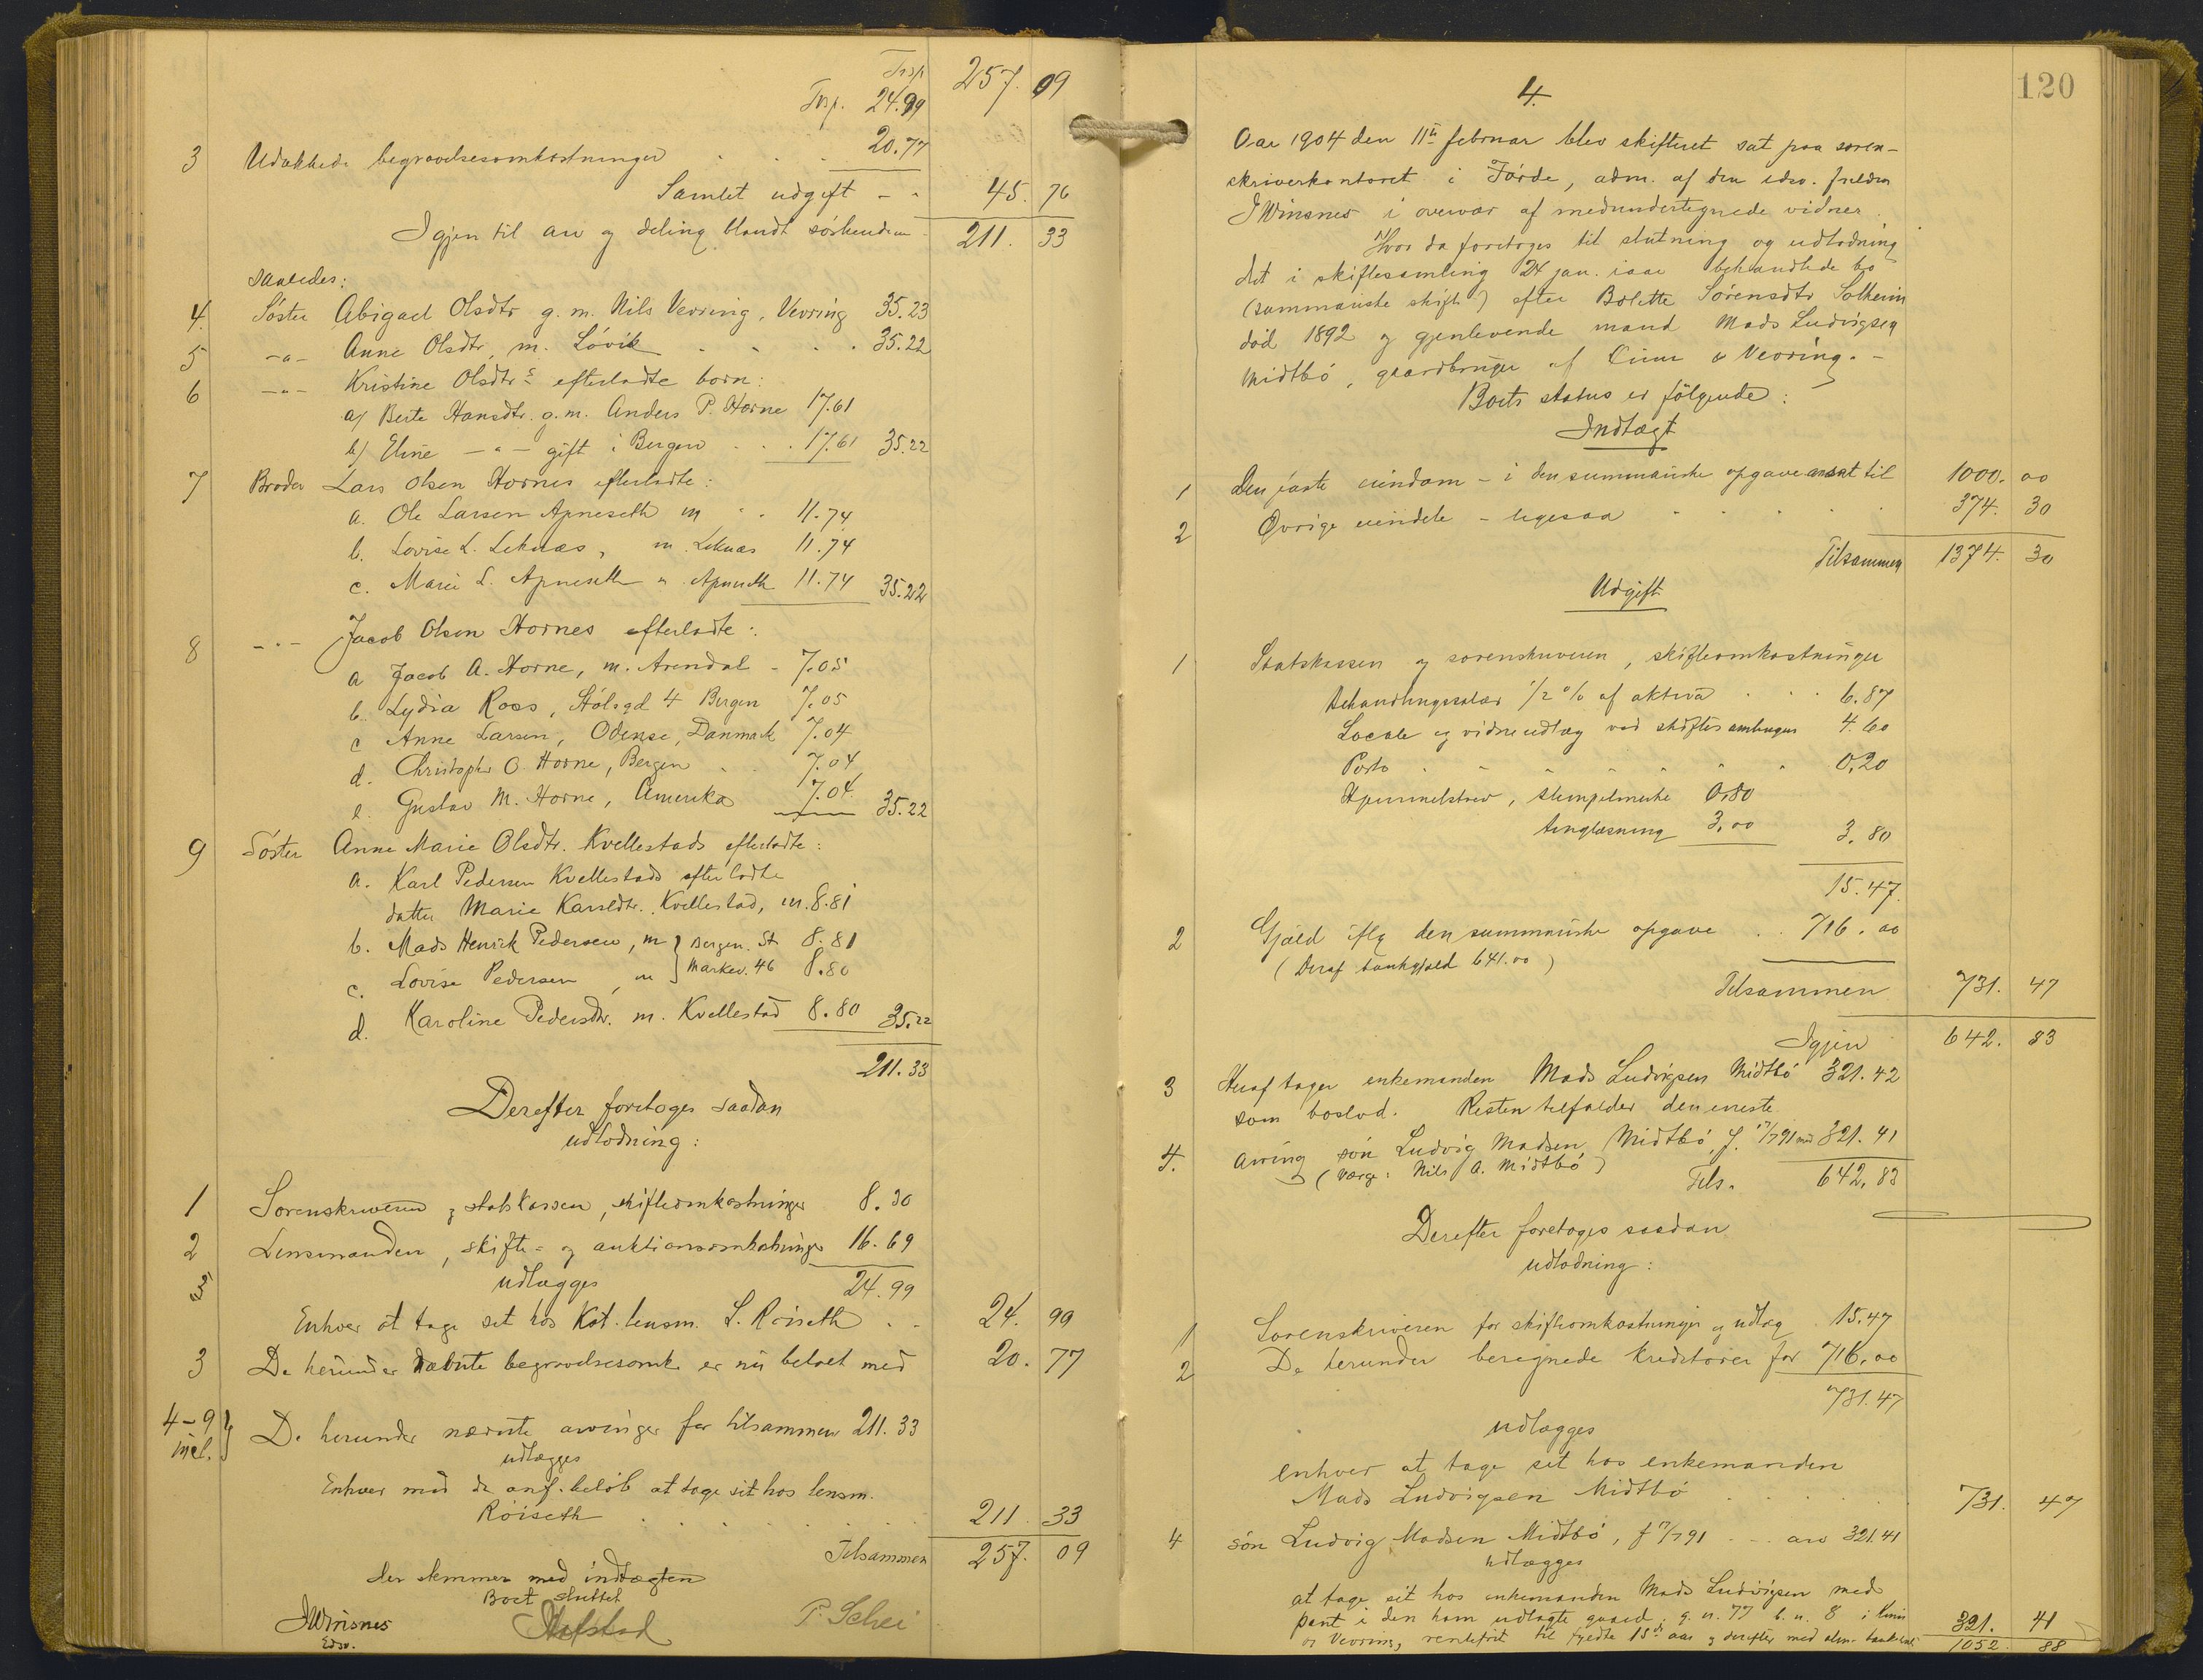 Trsp. 257. 09
Trsp. 24.99
3 Udækkede begravelsesomkostninger 20.77
Samlet udgift - - 45. 76
Igjen til arv og deling blandt søskendene 211. 33
saaledes:
4. Søster Abigael Olsdtr g. m. Nils Vevring, Vevring 35.23
5 -"- Anne Olsdtr, m. Løvik 35.22
6 -"- Kristine Olsdtrs efterladte børn:
a/ Berte Hansdtr. g. m. Anders P. Horne 17.61
b/ Eline -"- gift i Bergen 17.61 35.22
7 Broder Lars Olsen Hornes efterladte:
a. Ole Larsen Apneseth m 11.74
b. Lovise L. Leknæs, m. Leknæs 11.74
c. Marie L. Apneseth m. Apneseth 11.74 35.22
8 -"- Jacob Olsen Hornes efterladte:
a Jacob A. Horne, m. Arendal - 7.05
b. Lydia Roos, Hólsgd 4 Bergen 7.05
c Anne Larsen, Odense, Danmark 7.04
d. Christopher O. Horne, Bergen 7.04
e. Gustav M. Horne, Amerika 7.04. 35.22
9 Søster Anne Marie Olsdtr. Kvellestads efterladte:
a. Karl Pedersen Kvellestads efterladte
datter Marie Karsldtr. Kvellestad, m. 8.81
b. Mads Henrik Pedersen, m } Bergen. St. 8.81
c. Lovise Pedersen, m } Markev. 46 8.80
d. Karoline Pedersdtr. m. Kvellestad 8.80 35.22
211.33
Derefter foretoges saadan
udlodning:
1 Sorenskriveren og statskassen, skifteomkostninger 8.30
2 Lensmanden, skifte- og auktionsomkostninger 16.69
3 udlægges 24.99
Enhver at tage sit hos Kst. lensm. L. Röiseth 24. 99
3 De herunder nævnte begravelsesomk. er nu betalt med 20. 77
4-9 incl. } De herunder nævnte arvinger for tilsammen 211.33
udlægges
Enhver med de anf. beløb at tage sit hos lensm.
Röiseth 211. 33
Tilsammen 257. 09
der stemmer med indtægten
Boet sluttet
JWinsnes Hofstad P. Schei
Edsv.
120
4.
Aar 1904 den 11te februar blev skifteret sat paa soren-
skriverkontoret i Førde, adm. af den edsv. fuldm
JWinsnes i overvær af medundertegnede vidner.
Hvor da foretoges til slutning og udlodning
det i skiftesamling 24 jan. iaar behandlede bo
(summariske skifte) efter Bolette Sørensdtr Solheim
død 1892 og gjenlevende mand Mads Ludvigsen
Midtbø, gaardbruger af Kinn & Vevring. -
Boets status er følgende:
Indtægt
1 Den faste eiendom - i den summariske opgave ansat til 1000. 00
2 Øvrige eiendele - ligesaa 374. 30
Tilsammen 1374. 30
Udgift
1 Statskassen og sorenskriveren, skifteomkostninger
Behandlingssalær 1/2 % af aktiva 6.87
Locale og vidneudlæg ved skiftesamlinger 4.60
Porto 0.20
Hjemmelsbrev, stempelmerke 0.80
tinglæsning 3,00 3.80
15.47
2 Gjæld iflg den summariske opgave 716.00
(Deraf bankgjæld 641.00)
Tilsammen 731. 47
Igjen 642. 83
3 Heraf tager enkemanden Mads Ludvigsen Midtbø 321.42
som boslod. Resten tilfalder den eneste
4. arving søn Ludvig Madsen Midtbø, f. 17/7 91 med 321.41
(Verge: Nils A. Midtbø)
Tils. 642.83
Derefter foretoges saadan
udlodning:
1 Sorenskriveren for skifteomkostninger og udlæg 15.47
2 De herunder beregnede kreditorer for 716.00
731.47
udlægges
enhver at tage sit hos enkemanden
Mads Ludvigsen Midtbø 731. 47
4 søn Ludvig Madsen Midtbø, f 17/7 91 -- arv 321.41
udlægges
at tage sit hos enkemanden Mads Ludvigsen med
pant i den ham udlagte gaard: g. n. 77 b. n. 8 i Kinn
og Vevring, rentefrit til fyldte 15de aar og derefter med alm. 321. 41
1052. 88